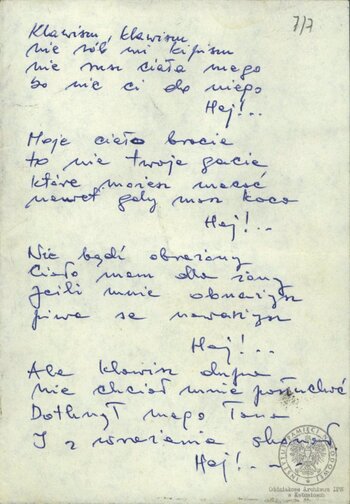 7/7
Klawiszu, klawiszu
nie rób mi kipiszu
nie rusz ciała mego
bo nic ci do niego
Hej!..
Moje ciało bracie
to nie twoje gacie
które możesz macać
nawet gdy masz kaca
Hej!..
Nie bądź obrażony
Ciało mam dla żony
Jeśli mnie obnażysz
piwa se nawarzysz
Hej!...
Ale klawisz dupa
nie chciał mnie posłuchać
Dotknął mego łona
I z wrażenia
Hej!..
INSTYTUT PAMIĘCI NARODOWEJ
Oddziałowe Archiwum IPN
w Katowicach